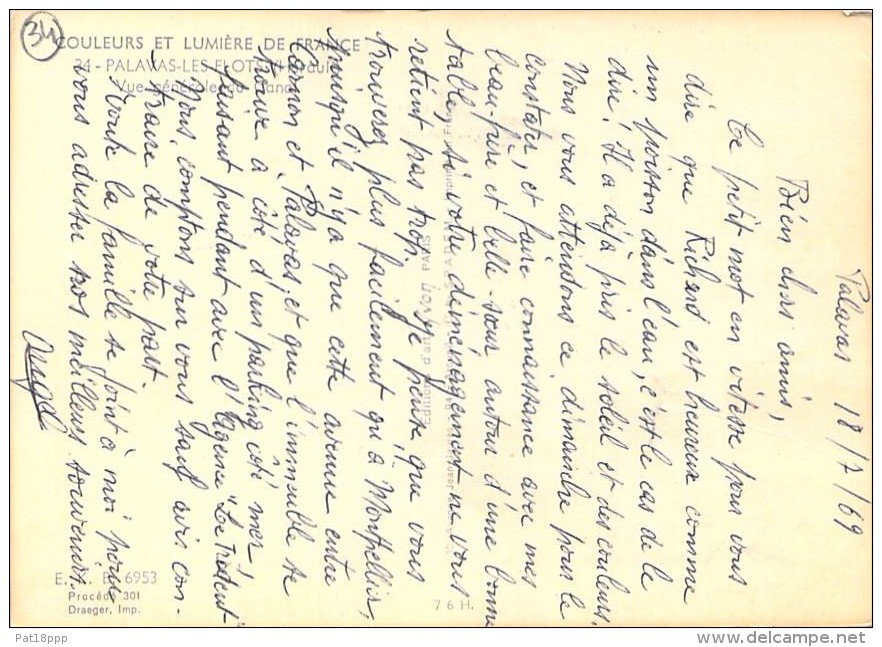 34
COULEURS ET LUMIÈRE DE FRANCE
34 - PALAVAS-LES-FLOTS (Hérault)
Vue générale du Canal
Palavas 18/7/69
Bien chers amis,
Ce petit mot en vitesse pour vous
dire que Richard est heureux comme
un poisson dans l'eau, c'est le cas de le
dire ! Il a déjà pris le soleil et des couleurs.
Nous vous attendons ce dimanche pour le
constater, et faire connaissance avec mes
beau-père et belle-sœur autour d'une bonne
table, si votre déménagement ne vous
retient pas trop. Je pense que vous
trouverez plus facilement qu'à Montpellier,
puisqu'il n'y a que cette avenue entre
Carnon et Palavas et que l'immeuble se
trouve à côté d'un parking côté mer,
faisant pendant avec l'Agence "Le Trident"
Nous comptons sur vous sauf avis con-
traire de votre part.
Toute la famille se joint à moi pour
vous adresser nos meilleurs souvenirs.
E. K. B. 6953
Procédé 301
Draeger, Imp.
76 H.
Pat18ppp
www.delcampe.net